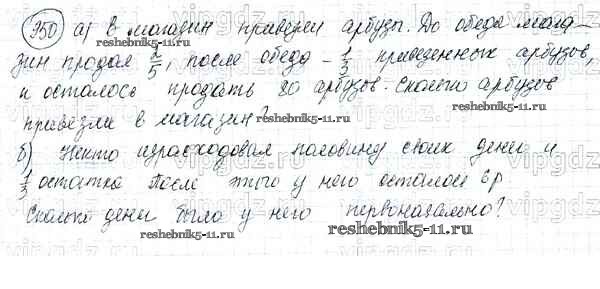 950 а) В магазин привезли арбузы. До обеда мага-
зин продал 2/5, после обеда - 1/3 привезенных арбузов,
и осталось продать 80 арбузов. Сколько арбузов
привезли в магазин?
б) Некто израсходовал половину своих денег и
1/3 остатка После этого у него осталось 6 р
Сколько денег было у него первоначально?
reshebnik5-11.ru
reshebnik5-11.ru
reshebnik5-11.ru
reshebnik5-11.ru
vipgdz
vipgdz
vipgdz
vipgdz